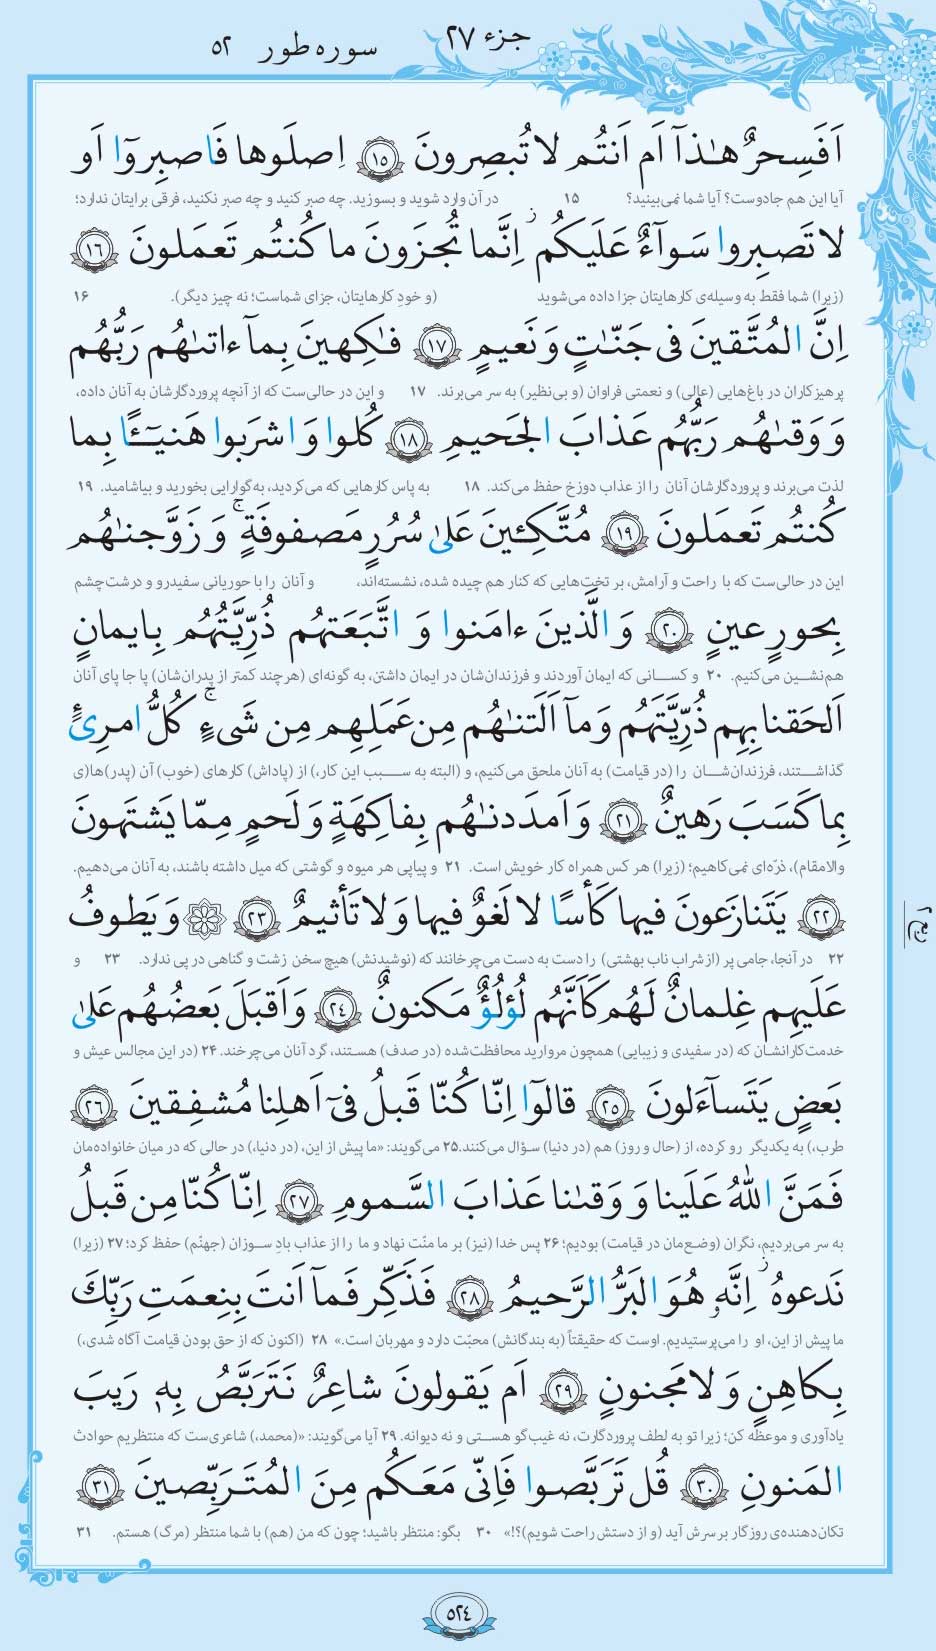 جزء ۲۷ سوره طور ۵۲
اَفَسِحرٌ هٰذآ اَم اَنتُم لا تُبصِرونَ ﴿١٥﴾ اِصلَوها فَاصبِروٓا اَو
آیا این هم جادوست؟ آیا شما نمی‌بینید؟ ۱۵ در آن وارد شوید و بسوزید. چه صبر کنید و چه صبر نکنید، فرقی برایتان ندارد؛
لا تَصبِروا سَوآءٌ عَلَيكُم ۖ اِنَّما تُجزَونَ ما كُنتُم تَعمَلونَ ﴿١٦﴾
(زیرا) شما فقط به وسیله‌ی کارهایتان جزا داده می‌شوید (و خودِ کارهایتان، جزای شماست؛ نه چیز دیگر). ۱۶
اِنَّ المُتَّقينَ فى جَنّٰتٍ وَ نَعيمٍ ﴿١٧﴾ فٰكِهينَ بِمآ ءاتىٰهُم رَبُّهُم
پرهیزکاران در باغ‌هایی (عالی) و نعمتی فراوان (و بی‌نظیر) به سر می‌برند. ۱۷ و این در حالی‌ست که از آنچه پروردگارشان به آنان داده،
وَ وَقىٰهُم رَبُّهُم عَذابَ الجَحيمِ ﴿١٨﴾ كُلوا وَ اشرَبوا هَنيٓـًٔا بِما
لذت می‌برند و پروردگارشان آنان را از عذاب دوزخ حفظ می‌کند. ۱۸ به پاس کارهایی که می‌کردید، به‌گوارایی بخورید و بیاشامید. ۱۹
كُنتُم تَعمَلونَ ﴿١٩﴾ مُتَّكِـٔينَ عَلىٰ سُرُرٍ مَصفوفَةٍ ۚ وَ زَوَّجنٰهُم
این در حالی‌ست که با راحت و آرامش، بر تخت‌هایی که کنار هم چیده شده، نشسته‌اند، و آنان را با حوریانی سفیدرو و درشت‌چشم
بِحورٍ عينٍ ﴿٢٠﴾ وَ الَّذينَ ءامَنوا وَ اتَّبَعَتهُم ذُرِّيَّتُهُم بِايمانٍ
هم‌نشین می‌کنیم. ۲۰ و کسانی که ایمان آوردند و فرزندان‌شان در ایمان داشتن، به گونه‌ای (هرچند کمتر از پدران‌شان) پا جا پای آنان
اَلحَقنا بِهِم ذُرِّيَّتَهُم وَ مآ اَلَتنٰهُم مِن عَمَلِهِم مِن شَىءٍ ۚ كُلُّ امرِئٍ
گذاشتند، فرزندان‌شان را (در قیامت) به آنان ملحق می‌کنیم، و (البته به سبب این کار،) از (پاداش) کارهای (خوب) آن (پدر)ها(ی
بِما كَسَبَ رَهينٌ ﴿٢١﴾ وَ اَمدَدنٰهُم بِفاكِهَةٍ وَ لَحمٍ مِمّا يَشتَهونَ
والامقام)، ذرّه‌ای نمی‌کاهیم؛ (زیرا) هر کس همراه کار خویش است. ۲۱ و پیاپی هر میوه و گوشتی که میل داشته باشند، به آنان می‌دهیم.
﴿٢٢﴾ يَتَنازَعونَ فيها كَأسًا لا لَغوٌ فيها وَ لا تَأثيمٌ ﴿٢٣﴾ ۞ وَ يَطوفُ
۲۲ در آنجا، جامی پر (از شراب ناب بهشتی) را دست به دست می‌چرخانند که (نوشیدنش) هیچ سخن زشت و گناهی در پی ندارد. ۲۳ و
عَلَيهِم غِلمانٌ لَهُم كَاَنَّهُم لُؤلُؤٌ مَكنونٌ ﴿٢٤﴾ وَ اَقبَلَ بَعضُهُم عَلىٰ
خدمت‌کارانشان که (در سفیدی و زیبایی) همچون مروارید محافظت‌شده (در صدف) هستند، گرد آنان می‌چرخند. ۲۴ (در این مجالس عیش و
بَعضٍ يَتَسآءَلونَ ﴿٢٥﴾ قالوٓا اِنّا كُنّا قَبلُ فىٓ اَهلِنا مُشفِقينَ ﴿٢٦﴾
طرب،) به یکدیگر رو کرده، از (حال و روز) هم (در دنیا) سؤال می‌کنند.۲۵ می‌گویند: «ما پیش از این، (در دنیا،) در حالی که در میان خانواده‌مان
فَمَنَّ اللّٰهُ عَلَينا وَ وَقىٰنا عَذابَ السَّمومِ ﴿٢٧﴾ اِنّا كُنّا مِن قَبلُ
به سر می‌بردیم، نگران (وضع‌مان در قیامت) بودیم؛ ۲۶ پس خدا (نیز) بر ما منّت نهاد و ما را از عذاب بادِ سوزان (جهنّم) حفظ کرد؛ ۲۷ (زیرا)
نَدعوهُ ۖ اِنَّهٗ هُوَ البَرُّ الرَّحيمُ ﴿٢٨﴾ فَذَكِّر فَمآ اَنتَ بِنِعمَتِ رَبِّكَ
ما پیش از این، او را می‌پرستیدیم. اوست که حقیقتاً (به بندگانش) محبّت دارد و مهربان است.» ۲۸ (اکنون که از حق بودن قیامت آگاه شدی،)
بِكاهِنٍ وَ لا مَجنونٍ ﴿٢٩﴾ اَم يَقولونَ شاعِرٌ نَتَرَبَّصُ بِهٖ رَيبَ
یادآوری و موعظه کن؛ زیرا تو به لطف پروردگارت، نه غیب‌گو هستی و نه دیوانه. ۲۹ آیا می‌گویند: «(محمد،) شاعری‌ست که منتظریم حوادث
المَنونِ ﴿٣٠﴾ قُل تَرَبَّصوا فَاِنّى مَعَكُم مِنَ المُتَرَبِّصينَ ﴿٣١﴾
تکان‌دهنده‌ی روزگار بر سرش آید (و از دستش راحت شویم)؟!» ۳۰ بگو: منتظر باشید؛ چون که من (هم) با شما منتظر (مرگ) هستم. ۳۱
۵۲۴